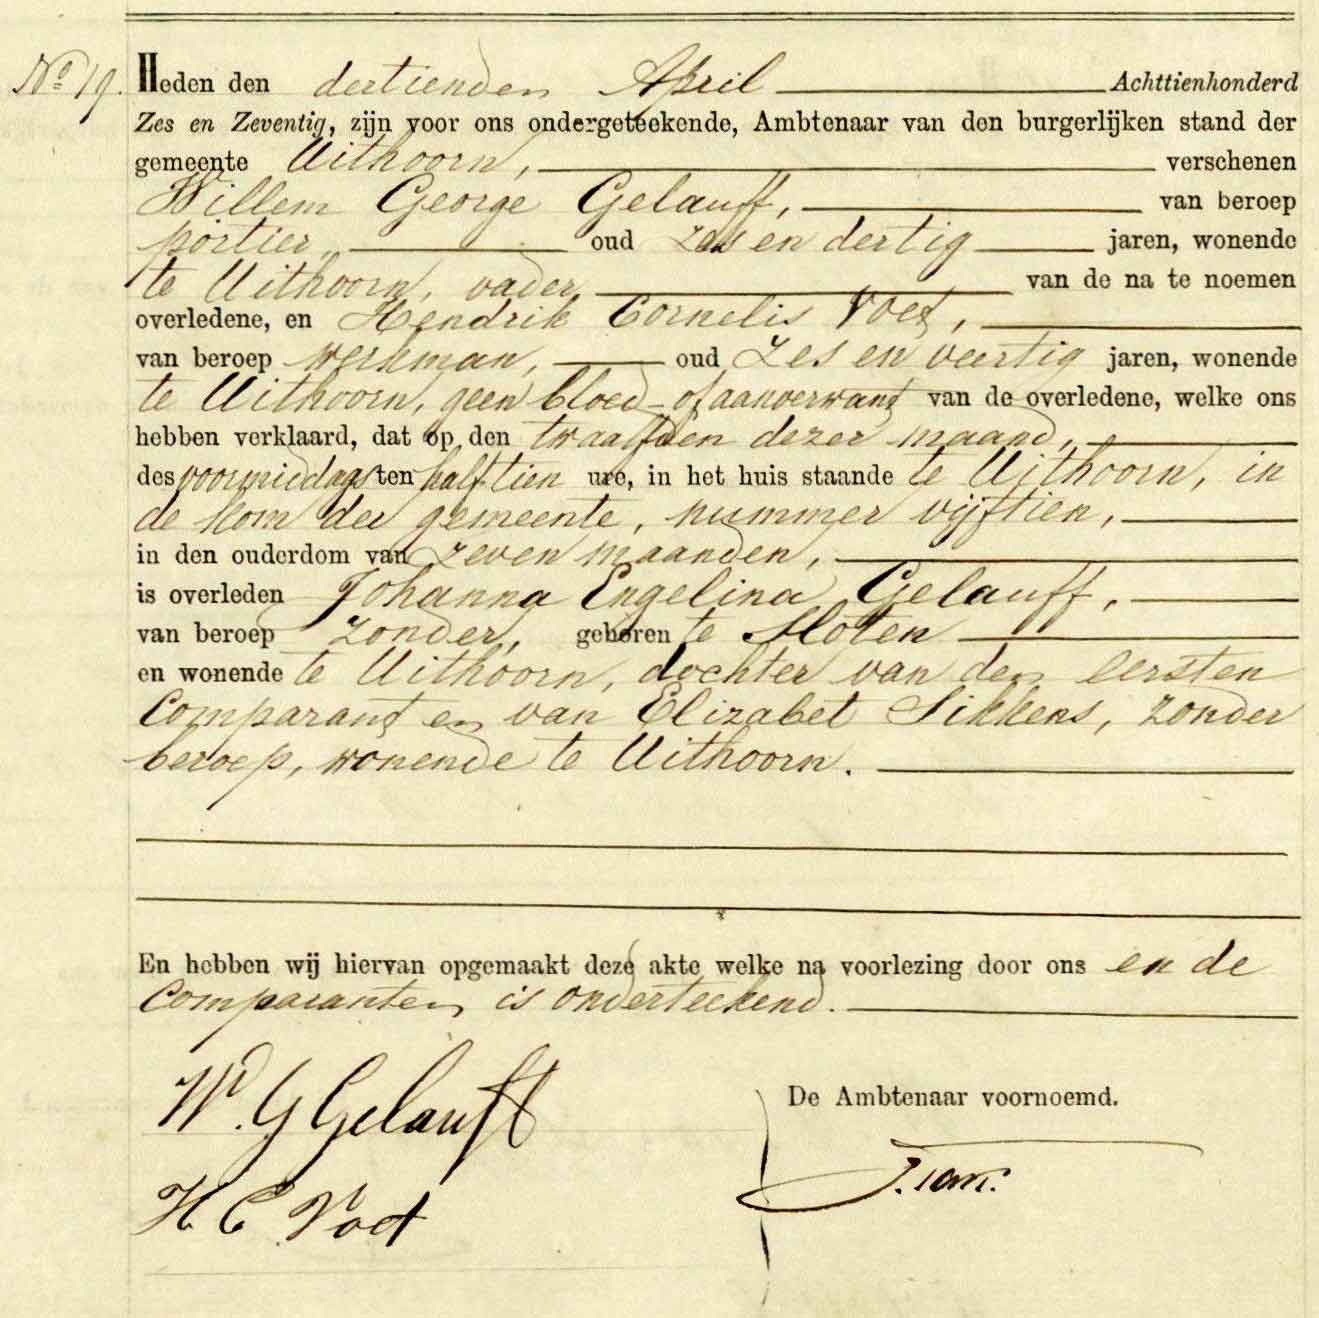 No 19. Heden den dertienden April Achttienhonderd
Zes en Zeventig, zijn voor ons ondergeteekende, Ambtenaar van den burgerlijken stand der
gemeente Uithoorn, verschenen
Willem George Gelauff, van beroep
portier, oud zes en dertig jaren, wonende
te Uithoorn, vader van de na te noemen
overledene, en Hendrik Cornelis Voet,
van beroep werkman, oud zes en veertig jaren, wonende
te Uithoorn, geen bloed- of aanverwant van de overledene, welke ons
hebben verklaard, dat op den twaalfden dezer maand,
des voormiddags ten half tien ure, in het huis staande te Uithoorn, in
de kom der gemeente, nummer vijftien,
in den ouderdom van zeven maanden,
is overleden Johanna Engelina Gelauff,
van beroep zonder, geboren te Sloten
en wonende te Uithoorn, dochter van den eersten
Comparant en van Elizabet Sikkens, zonder
beroep, wonende te Uithoorn.
En hebben wij hiervan opgemaakt deze akte welke na voorlezing door ons en de
Comparanten is onderteekend.
W. G Gelauff
De Ambtenaar voornoemd.
H C Voet